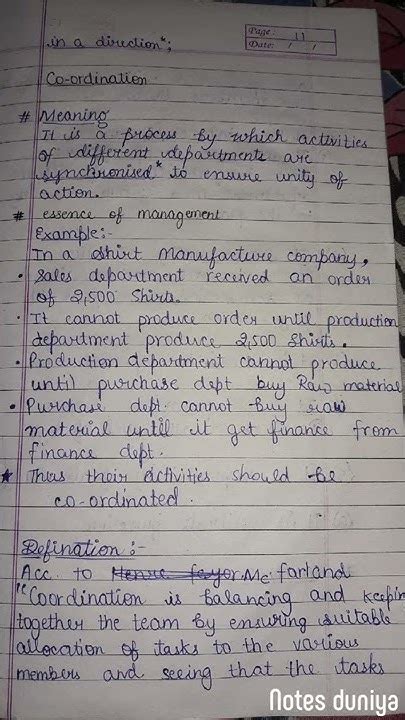 Page: 11
Date: / /
in a direction*;
Co-ordination
# Meaning
It is a process by which activities
of different departments are
synchronised* to ensure unity of
action.
# essence of management
Example:-
In a shirt manufacture company,
• Sales department received an order
of 2,500 Shirts.
• It cannot produce order until production
department produce 2,500 Shirts.
• Production department cannot produce
until purchase dept buy Raw material
• Purchase dept. cannot buy raw
material until it get finance from
finance dept.
* Thus their activities should be
co-ordinated.
Defination :-
Acc. to Mc farland
"Coordination is balancing and keeping
together the team by ensuring suitable
allocation of tasks to the various
members and seeing that the tasks
Notes duniya